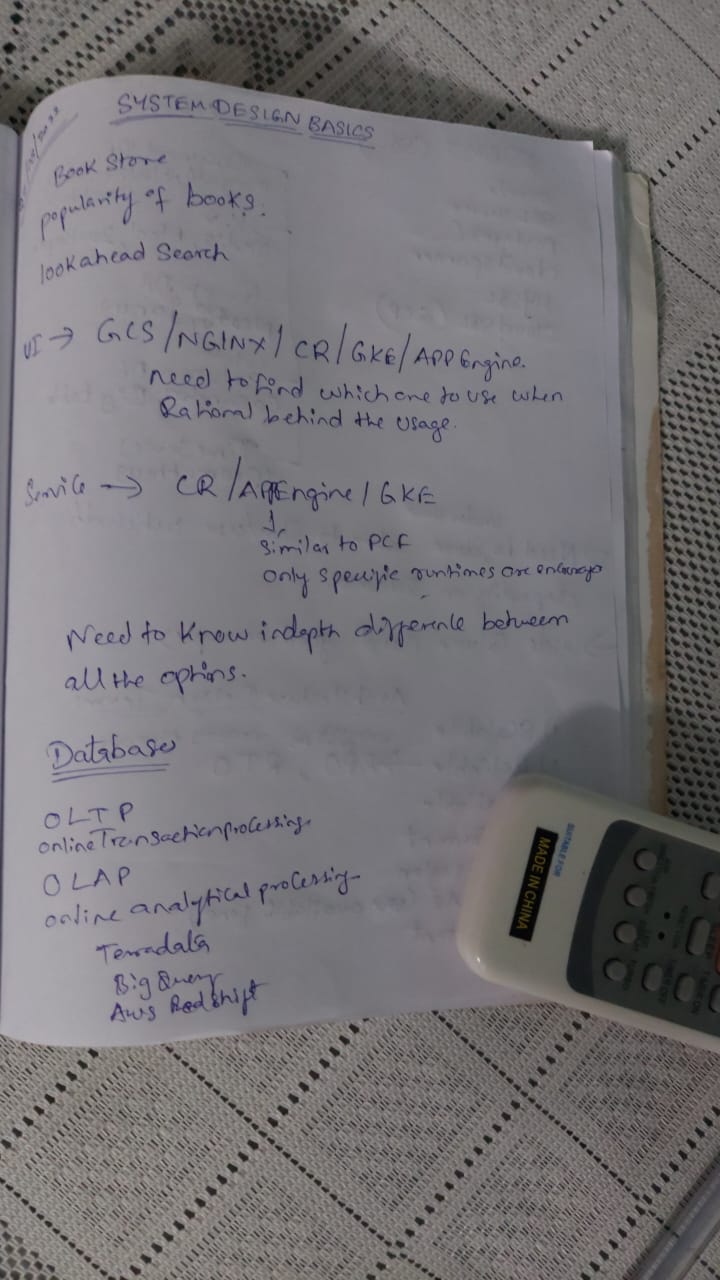 SYSTEM DESIGN BASICS
Book Store
popularity of books.
lookahead Search
UI → GCS/NGINX/CR/GKE/APP Engine.
need to find which one to use when
Rational behind the usage.
Service → CR/APPEngine/GKE
Similar to PCF
only specific runtimes are
Need to know indepth difference between
all the options.
Databases
OLTP
onlineTransactionprocessing.
OLAP
online analytical processing
Terradata
Big Query
Aws Redshift
SUITABLE FOR
MADE IN CHINA